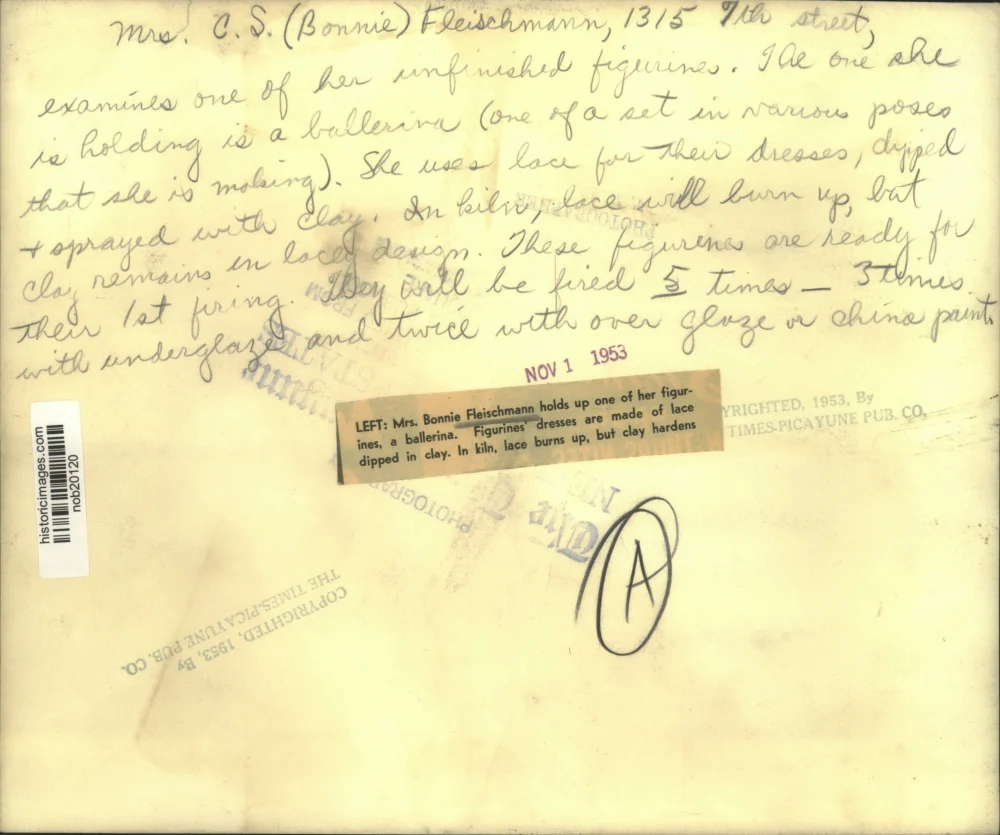 Mrs. C. S. (Bonnie) Fleischmann, 1315 7th street,
examines one of her unfinished figurines. The one she
is holding is a ballerina (one of a set in various poses
that she is making). She uses lace for their dresses, dipped
+ sprayed with clay. In kiln, lace will burn up, but
clay remains in lace design. These figurines are ready for
their 1st firing. They will be fired 5 times — 3 times
with underglaze and twice with over glaze or china paint.
NOV 1 1953
LEFT: Mrs. Bonnie Fleischmann holds up one of her figur-
ines, a ballerina. Figurines' dresses are made of lace
dipped in clay. In kiln, lace burns up, but clay hardens
YRIGHTED, 1953, By
TIMES-PICAYUNE PUB. CO.
historicimages.com
nob20120
PHOTOGRAPHER
FROM
STATES
PHOTOGRAP
The
A
COPYRIGHTED, 1953, By
THE TIMES-PICAYUNE PUB. CO.